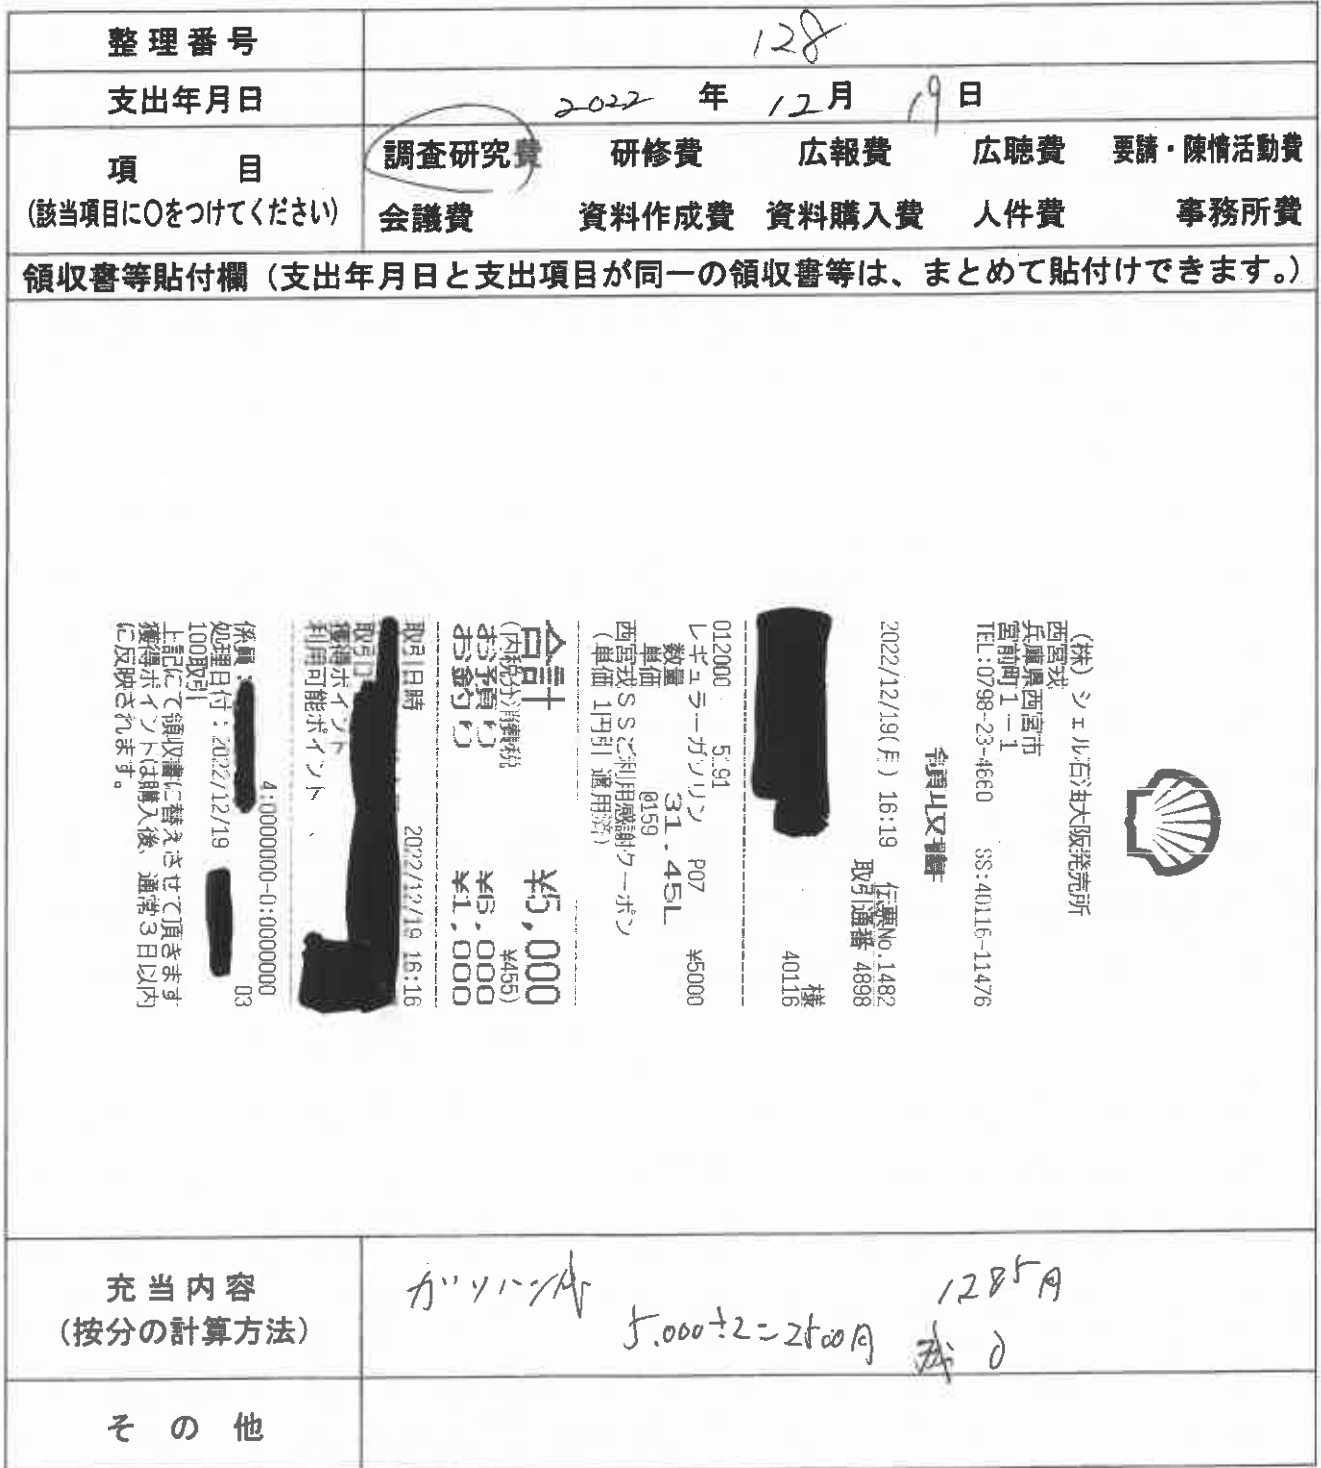 整理番号 128
支出年月日 2022 年 12 月 19 日
項 目
(該当項目に○をつけてください)
調査研究費 研修費 広報費 広聴費 要請・陳情活動費
会議費 資料作成費 資料購入費 人件費 事務所費
領収書等貼付欄（支出年月日と支出項目が同一の領収書等は、まとめて貼付けできます。）
(株) シェル石油大阪発売所
西宮戎
兵庫県西宮市
宮前町1-1
TEL:0798-23-4660 SS:40116-11476
領収書
2022/12/19(月) 16:19 伝票No.1482
取引通番 4898
様
40116
012000 5191
レギュラーガソリン P07 ¥5000
数量 31.45L
単価 @159
西宮戎SSご利用感謝クーポン
(単価 1円引 適用済)
合計 ¥5,000
(内税分消費税 ¥455)
お預り ¥6,000
お釣り ¥1,000
取引日時 2022/12/19 16:16
取引
獲得ポイント
利用可能ポイント
4:0000000-0:0000000
係員: 03
処理日付:2022/12/19
100取引
上記にて領収書に替えさせて頂きます
獲得ポイントは購入後、通常3日以内
に反映されます。
充当内容
(按分の計算方法)
ガソリン代
5.000÷2=2500円
1285円
残 0
その他